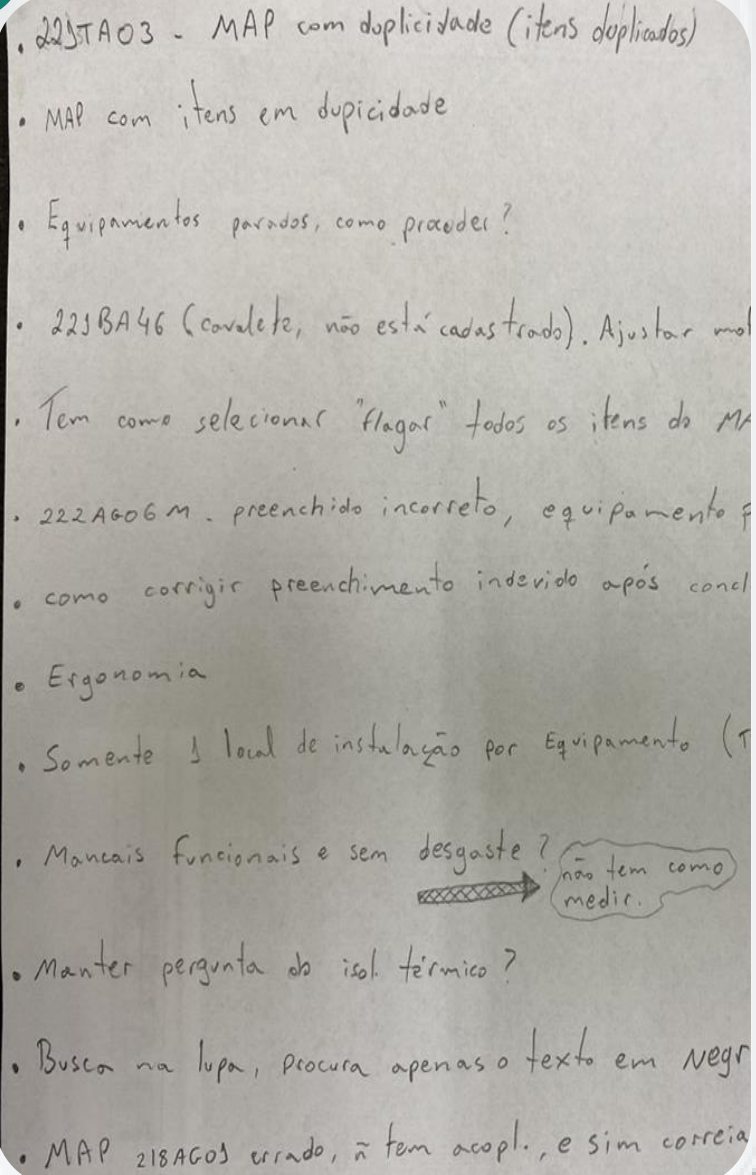 . 221TA03 - MAP com duplicidade (itens duplicados)
• MAP com itens em dupicidade
• Equipamentos parados, como proceder?
• 221BA46 (cavalete, não está cadastrado). Ajustar
• Tem como selecionar "flagar" todos os itens do
• 222AG06M. preenchido incorreto, equipamento
• como corrigir preenchimento indevido após
• Ergonomia
• Somente 1 local de instalação por Equipamento
• Mancais funcionais e sem desgaste?
não tem como
medir.
• Manter pergunta do isol. térmico?
• Busca na lupa, procura apenas o texto em
• MAP 218AG01 errado, ñ tem acopl., e sim correia